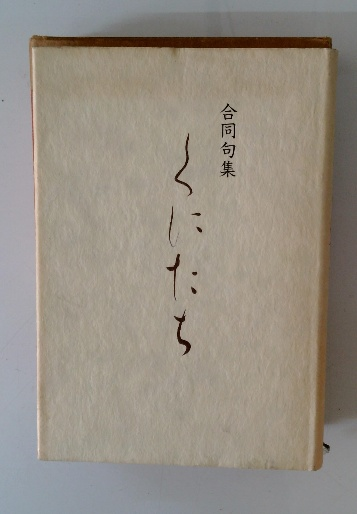 合同句集
くにたち